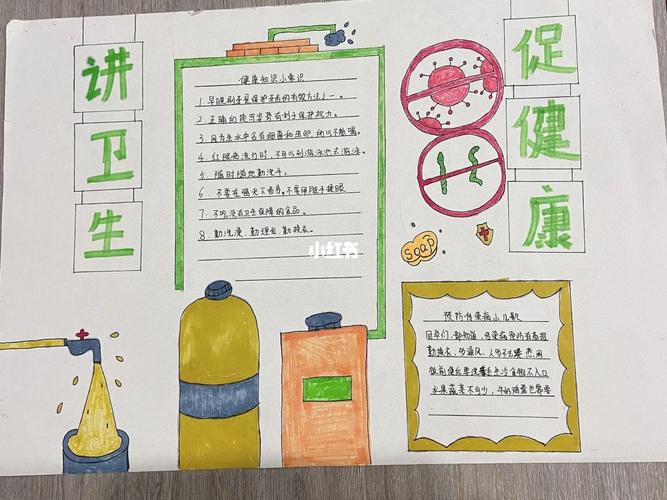 讲卫生
促健康
健康知识小常识
1. 早晚刷牙是保护牙齿的有效方法之一。
2. 正确的读写姿势有利于保护视力。
3. 因为生水中含有细菌和虫卵,所以不能喝。
4. 红眼病流行时,不可以到游泳池去游泳。
5. 随时随地勤洗手。
6. 不要在强光下看书,不要用脏手揉眼
7. 不吃没有卫生保障的食品。
8. 勤洗澡、勤理发、勤换衣。
小红书
soap
预防传染病小儿歌
同学们,都知道,传染病预防有高招
勤换衣,多通风,人多不去凑热闹
饭前便后要洗手生冷食物不入口
水果蔬菜不可少,牛奶鸡蛋也需要